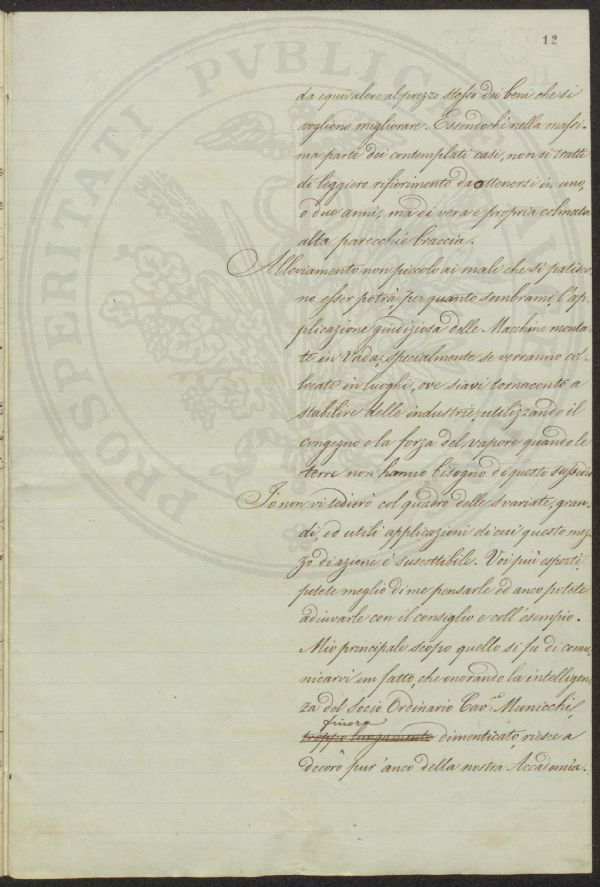 12
da equivalere al prezzo stesso dei beni che si
vogliono migliorare. Essendochè nella massi-
ma parte dei contemplati casi, non si tratti
di leggiero rifiorimento da ottenersi in uno,
o due anni, ma di vera e propria colmata
alta parecchie braccia.
Alleviamento non piccolo ai mali che si patisco-
no esser potrà, per quanto sembrami, l'ap-
plicazione giudiziosa delle Macchine monta-
te in Vada; specialmente se verranno col-
locate in luoghi, ove siavi tornaconto a
stabilire delle industrie, utilizzando il
congegno e la forza del vapore quando le
terre non hanno bisogno di questo sussidio
Io non vi tedierò col quadro delle svariate, gran-
di, ed utili applicazioni di cui questo mez-
zo di azione è suscettibile. Voi più esperti,
potete meglio di me pensarle ed anco potete
adiuvarle con il consiglio e coll'esempio.
Mio principale scopo quello si fu di comu-
nicarvi un fatto, che onorando la intelligen-
za del Socio Ordinario Cav.re Municchi,
finora
troppo lungamente dimenticato, riesce a
decoro pur'anco della nostra Accademia.
PROSPERITATI PVBLICAE